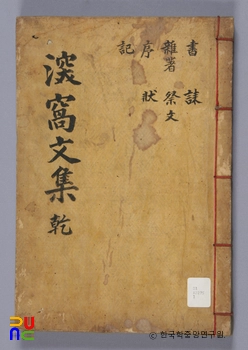 書 誄
雜著 祭文
序 狀
記
淡窩文集 乾
© 한국학중앙연구원